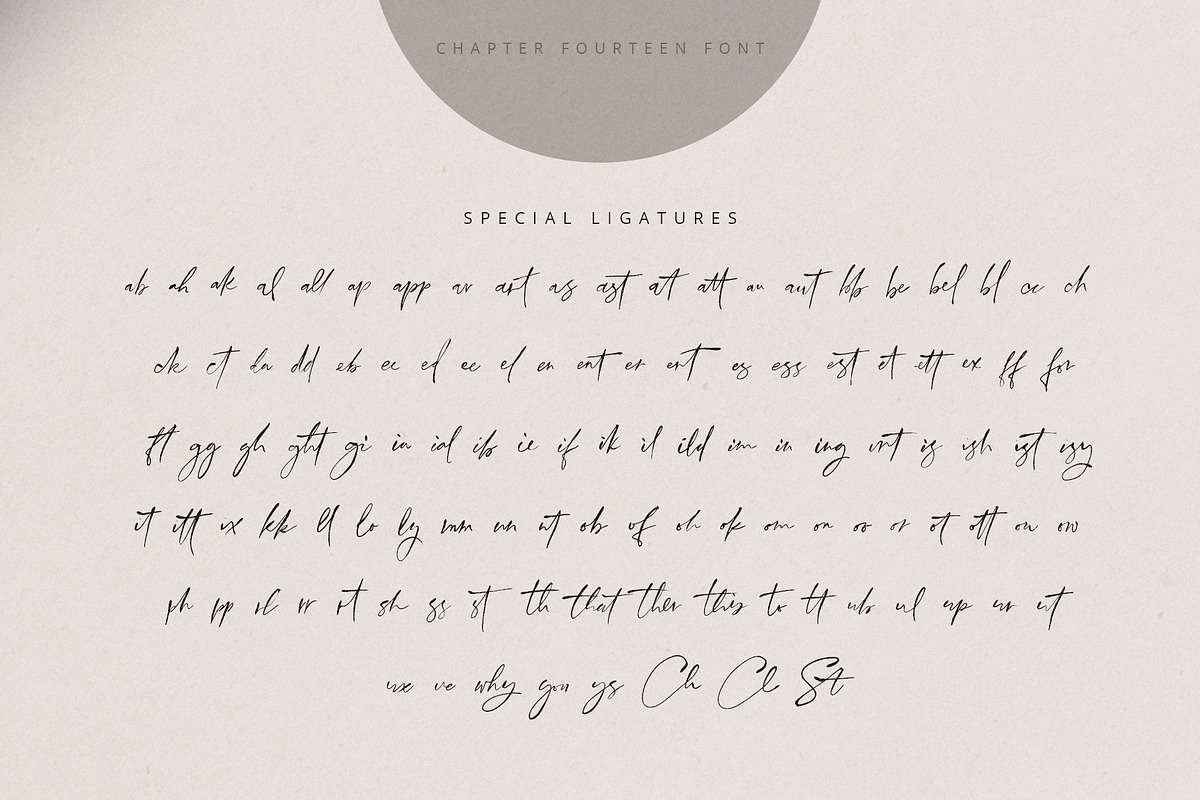 CHAPTER FOURTEEN FONT
SPECIAL LIGATURES
ab ah ak al all ap app ar art as ast at att au aut bb be bel bl cc ch
ck ct da dd eb ec ed ee el en ent er ert es ess est et ett ex ff for
ft gg gh ght gi ia ial ib ie if ik il ild im in ing int is ish ist isy
it itt ix kk ll lo ly mm nn nt ob of oh ok om on oo or ot ott ou ow
ph pp rl rr rt sh ss st th that ther this to tt ub ul up ur ut
ux ve why you ys Ch Cl St